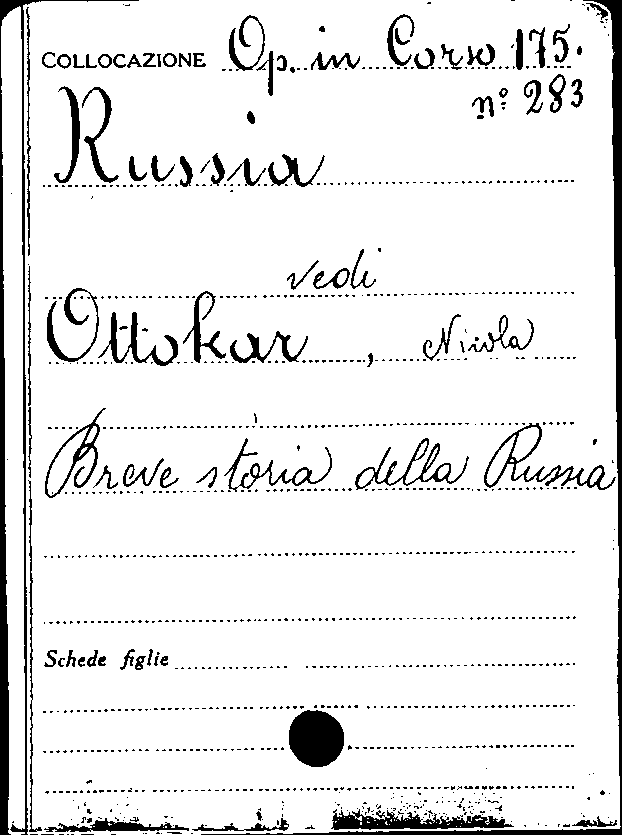 COLLOCAZIONE Op. in Corso 175.
n° 283
Russia
vedi
Ottokar, Nicola
Breve storia della Russia
Schede figlie